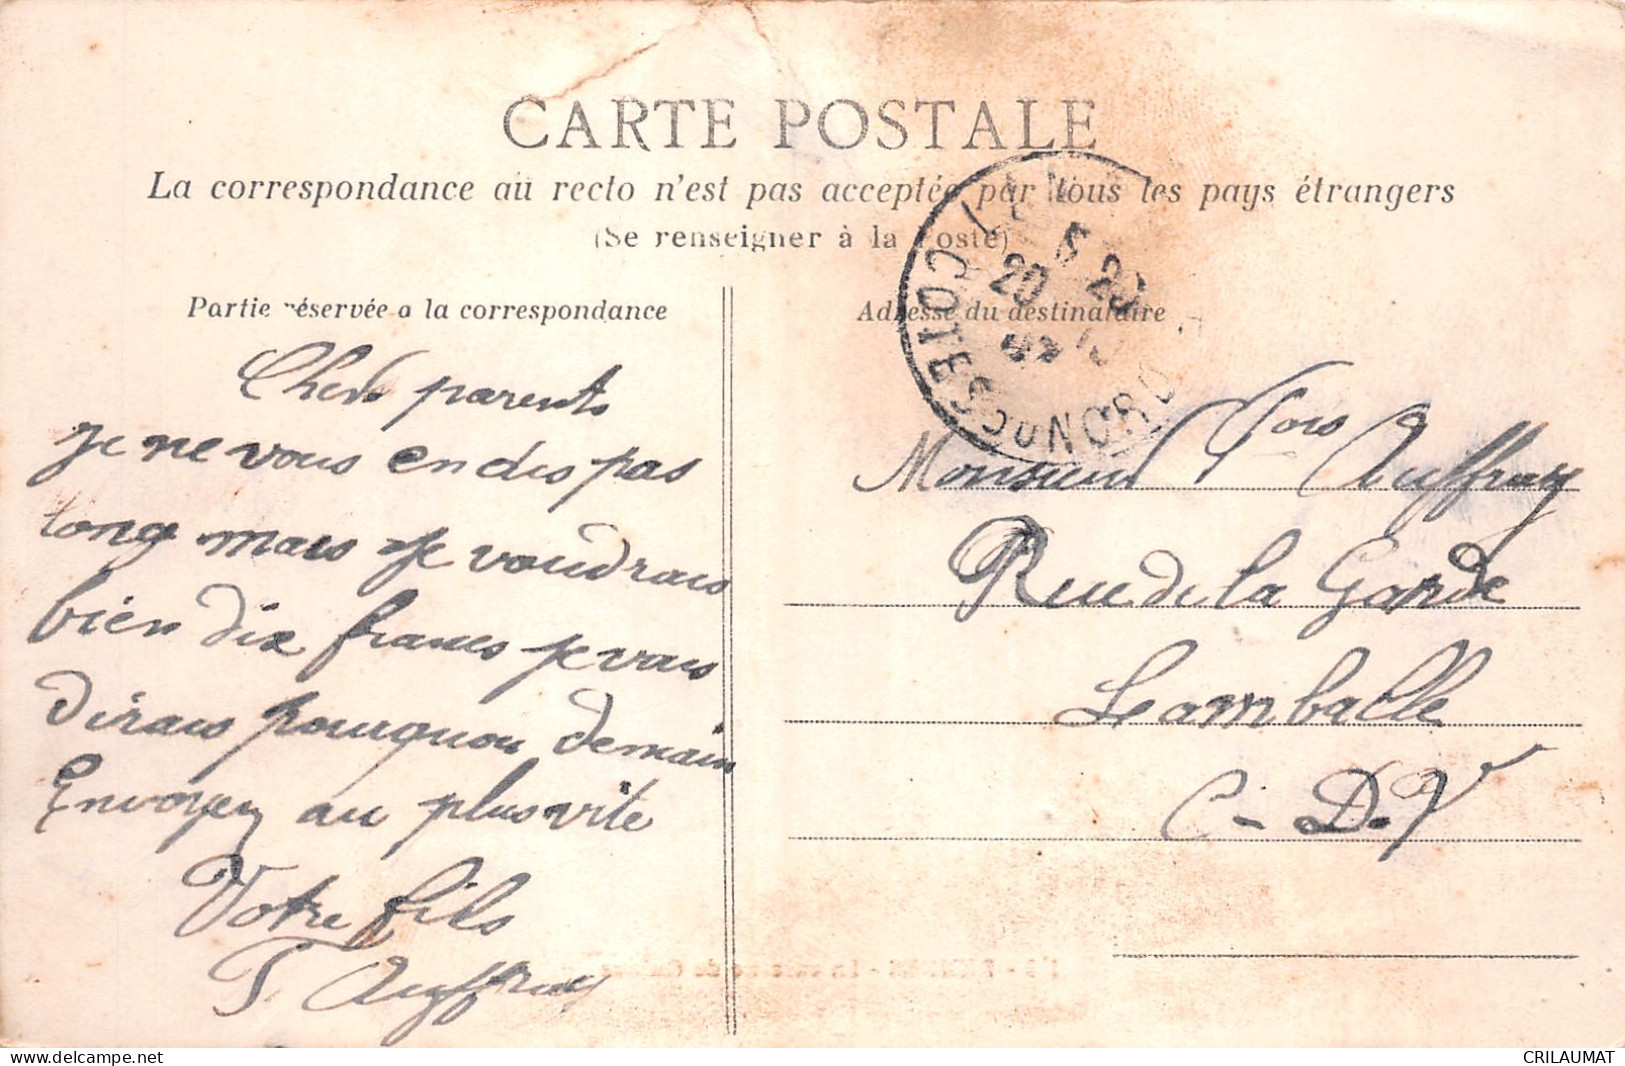 CARTE POSTALE
La correspondance au recto n'est pas acceptée par tous les pays étrangers
(Se renseigner à la Poste)
Partie réservée a la correspondance
Cher parents
je ne vous en dis pas
long mais je voudrais
bien dix francs je vous
dirais pourquoi demain
Envoyez au plus vite
Votre fils
F. Auffray
Adresse du destinataire
20
5 20
COTES DU NORD
Monsieur Fois Auffray
Rue de la Garde
Lamballe
C-D-N
CRILAUMAT
delcampe.net